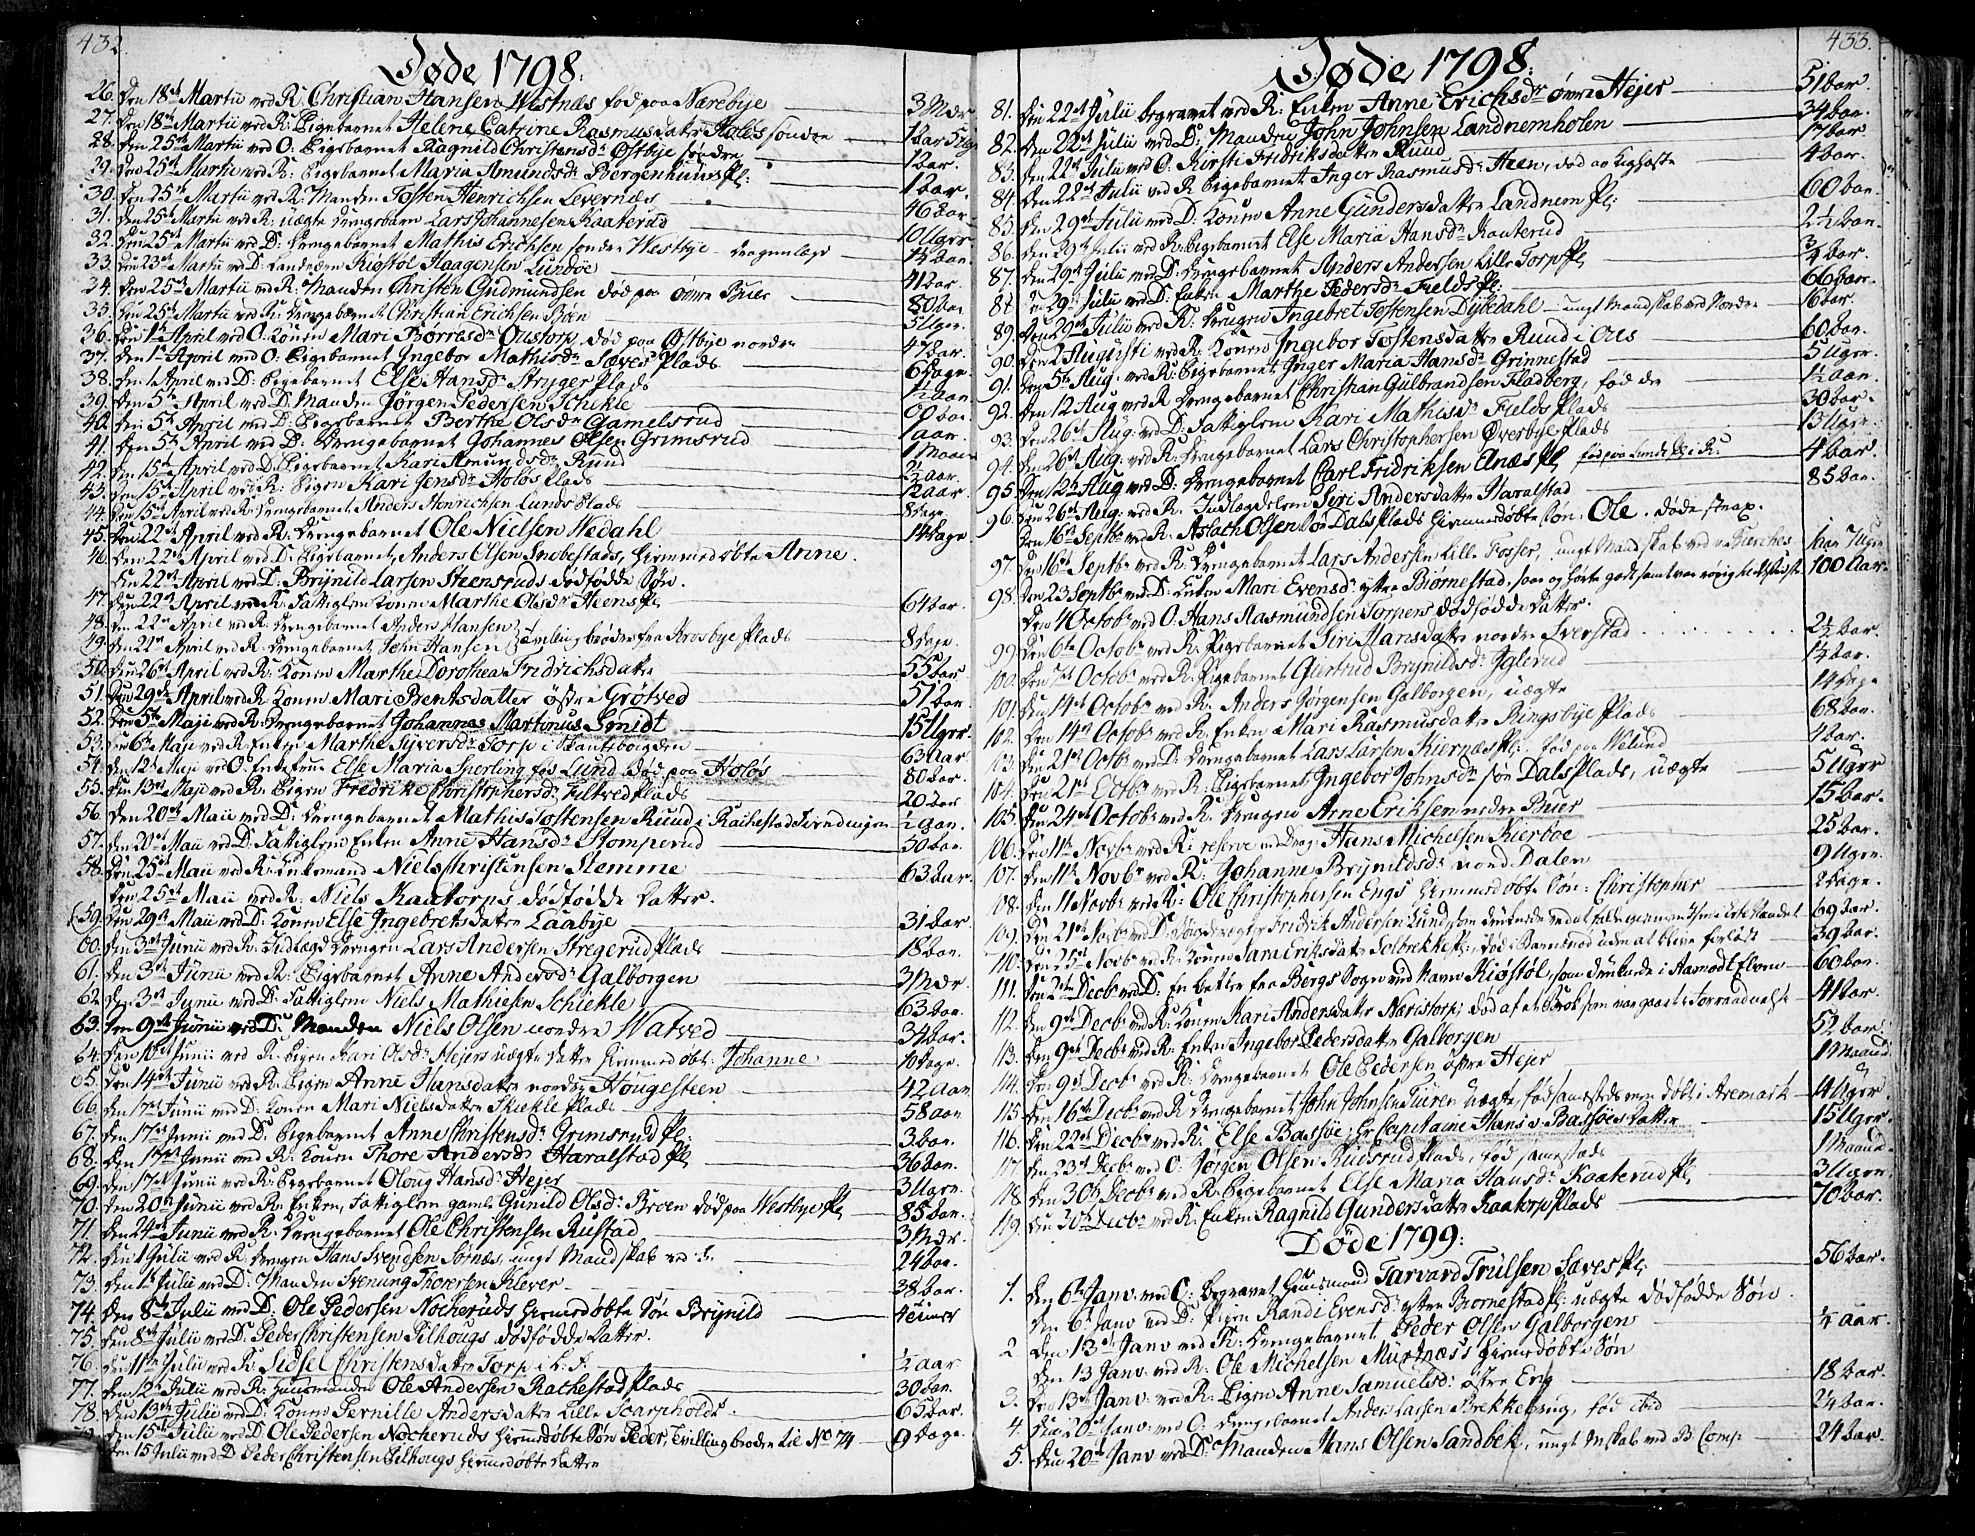 432
Døde 1798.
26. Den 18de Martii ved R. Christian Hansen Westnæs fød paa Nærebye 3 Mdr
27. Den 18de Martii ved R: Pigebarnet Helene Catrine Rasmusdatter Holøs søndre 1 aar
28. Den 25de Martii ved O: Pigebarnet Ragnild Christensdr Østbye søndre 1 aar.
29. Den 25de Martii ved R: Pigebarnet Maria Amundsdr Bergenhuus Pl: 1 aar
30. Den 25de Martii ved R. Manden Tosten Henrichsen Levernæs 46 aar
31. Den 25de Martii ved R: uægte Drengebarn Lars Johannesen Kaaterud 10 Uger
32. Den 25de Martii ved D: Drengebarnet Mathis Erichsen søndre Westbye 1½ aar.
33. Den 25de Martii ved D: Kiøstol Haagensen Lundøe 41 aar.
34. Den 25de Martii ved R: Manden Christen Gudmundsen død paa øvre Buer 80 aar
35. Den 25de Martii ved R: Drengebarnet Christian Erichsen Bøen 5 Uger.
36. Den 1te April ved O. Konen Mari Børresdr Oustorp død paa Østbye nordre 47 aar.
37. Den 1te April ved O. Pigebarnet Ingebor Mathisdr Sæves Plads 6 Dage.
38. Den 1 April ved D: Pigebarnet Else Hansdr Stryger Plads 1½ aar
39. Den 5te April ved D. Manden Jørgen Pedersen Schikle 69 aar.
40. Den 5te April ved D: Pigebarnet Berthe Olsdr Gamelsrud 1 aar.
41. Den 5te April ved D: Drengebarnet Johannes Olsen Grimsrud 1 Maan
42. Den 15de April ved D. Pigebarnet Kari Amundsdr Ruud ½ aar.
43. Den 15de April ved R: Pigen Kari Jensdr Holøs Plads 12 aar.
44. Den 15de April ved R: Drengebarnet Anders Henrichsen Lunds Plads 8 Dage
45. Den 22de April ved R. Drengebarnet Ole Nielsen Wedahl 14 Dage
46. Den 22de April ved D. Pigebarnet, Anders Olsen Snobestads, hiemmedøbte Anne
Den 22de April ved D: Brynild Larsen Steensruds dødfødde Søn.
47. Den 22de April ved R. Fattiglem Konen Marthe Olsdr Heens Pl 64 aar.
48. Den 22de April ved R. Drengebarnet Anders Hansen
49. Den 22de April ved R. Drengebarnet John Hansen } tvilling brødre fra Krosbye Plads 8 Dage
50. Den 26de April ved R: Konen Marthe Dorothea Fridrichsdatter 55 aar.
51. Den 29de April ved R Konen Mari Bentsdatter østre Grotved 57 aar.
52. Den 5te Maji ved R. Drengebarnet Johannes Martinus Smidt 15 Uger.
53. Den 6te Maji ved R. Enken Marthe Syversdr Torp i Skantebøigden 63 aar
54. Den 12te Maji ved O. Enkefrue Else Maria Sperling fød Lund død paa Holøs 80 aar.
55. Den 13de Maji ved R. Pigen Fredrike Christophersdr Tiltved Plads 20 aar
56. Den 20de Maii ved D: Drengebarnet Mathis Tostensen Ruud i Rachestad Fierdingen ½ aar.
57. Den 20de Maii ved D: Fattiglem Enken Anne Hansdr Stomperud 50 aar.
58. Den 25de Maii ved R. Enkemand Niels Christensen Nemme 63 aar.
Den 25de Maii ved R. Niels Kaatorps dødfødde Datter.
59. Den 29de Maii ved D: Konen Else Ingebretsdatter Laabye 31 aar
60. Den 3de Junii ved R. Indlægd Drengen Lars Andersen Stregerud Plads 18 aar.
61. Den 3de Junii ved R: Pigebarnet Anne Andersdr Galborgen 3 Mdr.
62. Den 3de Junii ved D: Fattiglem Niels Mathiesen Schiekle 63 aar.
63. Den 9de Junii ved D: Manden Niels Olsen nordre Watved 34 aar.
64. Den 10de Junii ved R. Pigen Kari Olsdr Hejers uægte Datter hiemmedøbt. Johanne 10 Dage.
65. Den 14de Junii ved R. Pigen Anne Hansdatter nordre Høugesteen 42 aar
66. Den 17de Junii ved D: Konen Mari Nielsdatter Skiekle Plads 58 aar
67. Den 17de Junii ved D. Pigebarnet Anne Christensdr Grimsrud Pl: 3 aar.
68. Den 17de Junii ved R. Konen Thore Andersdr Haralstad Pl 36 aar.
69. Den 17de Junii ved R. Pigebarnet Oloug Hansdr Hejer 3 Uger.
70. Den 20de Junii ved R. Enken, Fattiglem gamle Gunild Olsdr Broen død paa Westbye Pl 85 aar.
71. Den 24de Junii ved R. Drengebarnet Ole Christensen Rustad 3 Mdr.
72. Den 1 Julii ved R. Drengen Hans Svendsen Sørnæs, ungt Mandskab ved 24 aar.
73. Den 1te Julii ved D: Manden Svenung Thoresen Klever 38 aar.
74. Den 8de Julii ved D: Ole Pedersen Nocheruds hiemdøbte Søn Brynild 4 Timer
75. Den 8de Julii ved D. Peder Christensen Pilhougs dødfødde Datter.
76. Den 11te Julii ved R. Sidsel Christensdatter Torp i S. F. ½ aar
77. Den 12te Julii ved R. Huusmanden Ole Andersen Rachestad Plads 30 aar.
78. Den 13de Julii ved D. Konen Pernille Andersdatter Lille Scarpholdt. 65 aar.
79. Den 15de Julii ved D. Ole Pedersen Nocheruds hiemdøbte Søn Peder, Tvillingbroder til No 74 9 Dage.
Den 15 Julii ved D. Peder Christensen Pilhougs hiemmedøbte Datter
433.
Døde 1798.
81. Den 22de Julii begravet ved R: Enken Anne Erichsdr øvre Hejer 51 aar.
82. Den 22de Julii ved D: Manden John Johnsen Landnemholen 34 aar.
83. Den 22de Julii ved O. Kirsti Fridriksdatter Ruud 17 aar
84. Den 22de Julii ved R Pigebarnet Inger Rasmusdr Heen, død 4 aar.
85. Den 29de Julii ved D: Konen Anne Gundersdatter Landnem Pl: 60 aar.
86. Den 29de Julii ved R. Pigebarnet Else Maria Hansdr Kaaterud 2½ aar.
87. Den 29de Julii ved D: Drengebarnet Anders Andersen Lille Torp Pl ¾ aar.
88. Den 29de Julii ved D: Enken Marthe Pedersdr Fields Pl: 66 aar.
89. Den 29de Julii ved R: Drengen Ingebret Tostensen Dybedahl - ungt Mandskab ved Nordre 16 aar.
90. Den 2 Augusti ved R. Konen Ingebor Tostensdatter Ruud i Oes 60 aar.
91. Den 5te Aug: ved R: Pigebarnet Inger Maria Hansdr Grinnestad 5 Uger.
92. Den 12 Aug ved R Drengebarnet Christian Gulbrandsen Fladberg, fød 1½ aar.
93. Den 26de Aug. ved D. Fattiglem Kari Mathisdr Fields Plads 30 aar.
94. Den 26de Aug. ved R. Drengebarnet Lars Christophersen Øverbye Plads 13 Uger.
95. Den 12te Aug ved D: Drengebarnet Carl Fridriksen Elnæs Pl 4 aar.
96. Den 26de Aug. ved R. Indlægdelem Siri Andersdatter Haralstad 85 aar.
Den 16de Septbr ved R. Aslach Olsen Dals Plads hiemmedøbte Søn: Ole. døde strax.
97. Den 16de Septbr ved R. Drengebarnet Lars Andersen Lille Fosser, ungt Mandskab ved 1 aar 7 Uger
98. Den 23 Septbr ved D: Enken Mari Evensdr yttre Biørnestad, saae og hørte godt samt var 100 aar.
Den 4 Octobr ved O. Hans Rasmundsen Torpers dødfødde Datter.
99. Den 6te Octobr ved R. Pigebarnet Siri Hansdatter nordre Sverstad 2½ aar
100. Den 7de Octobr ved R. Pigebarnet Giertrud Brynildsdr Iglerud 1½ aar.
101. Den 14de Octobr ved R. Anders Jørgensen Galborgen, uægte 14 Dage
102. Den 14de Octobr ved R. Enken Mari Rasmusdatter Ringsbye Plads 68 aar.
103. Den 21de Octbr ved D. Drengebarnet Lars Larsen Kiernæs Pl., fød paa Velund 4 aar.
104. Den 21de Octbr ved R. Pigebarnet Ingebor Johnsdr Dals Plads, uægte 5 Uger
105. Den 24de Octobr ved R. Drengen Arne Eriksen nedre Buer 15 aar.
106. Den 11te Novbr ved R: reserve Hans Michelsen Kierbøe 25 aar.
107. Den 11te Novbr ved R. Johanne Brynildsdr nord. Dalen 9 Uger.
108. Den 11 Novbr ved R: Ole Christophersen Engs hiemmedøbte Søn: Christopher 2 Dage.
109. Den 21de Novbr ved D. Fridrik Andersen Lund 69 aar.
110. Den 25de Novbr ved R. Konen Sara Eriksdatter Solbrekke Pl., død i Barnsnød uden at blive forløst 39 aar.
111. Den 2den Decbr ved D: En betler fra Bergs Sogn ved navn Kiøstøl, som druknede i Aamodt Elven 60 aar.
112. Den 9de Decbr ved R: Konen Kari Andersdatter Næristorp; død af et Brok som var gaaet i Forraadnelse 41 aar.
113. Den 9de Decbr ved R. Enken Ingebor Pedersdatter Galborgen 52 aar.
114. Den 9de Decbr ved R: Drengebarnet Ole Pedersen østre Hejer 1 Maaned
115. Den 16de Decbr ved R Drengebarnet John Johnsen Tuiren uægte, fød sammesteds men døbt i Aremark 14 Uger
116. Den 22de Decbr ved R. Else Bassøe, Hr Capitaine Hans v. Bassøes Datter 15 Uger.
117. Den 23de Decbr ved O. Jørgen Olsen Buserud Plads, fød sammesteds 1 Maaned
118. Den 30te Decbr ved R. Pigebarnet Else Maria Hansdr Kaaterud Pl 3 Uger.
119. Den 30te Decbr ved R. Enken Ragnild Gundersdatter Kaatorp Plads 70 aar.
Døde 1799.
1. Den 6te Janv. ved O: Begravet Huusmand Tarvard Trulsen Sæves Pl: 56 aar.
Den 6te Janv ved D: Pigen Randi Evensdr yttre Biørnestad Pl: uægte dødfødde Søn.
2. Den 13de Janv ved R: Drengebarnet Peder Olsen Galborgen ¼ aar.
Den 13 Janv ved R. Ole Michelsen Murtnæss hiemedøbte Søn
3. Den 13de Janv: ved R: Pigen Anne Samuelsdr østre Eng 18 aar.
4. Den 20de Janv: ved O. Drengebarnet Anders Larsen Brekkebyug, fød ibid 2¼ aar.
5. Den 20de Janv ved D: Manden Hans Olsen Sandbek, ungt Mskab ved B Comp 24 aar.